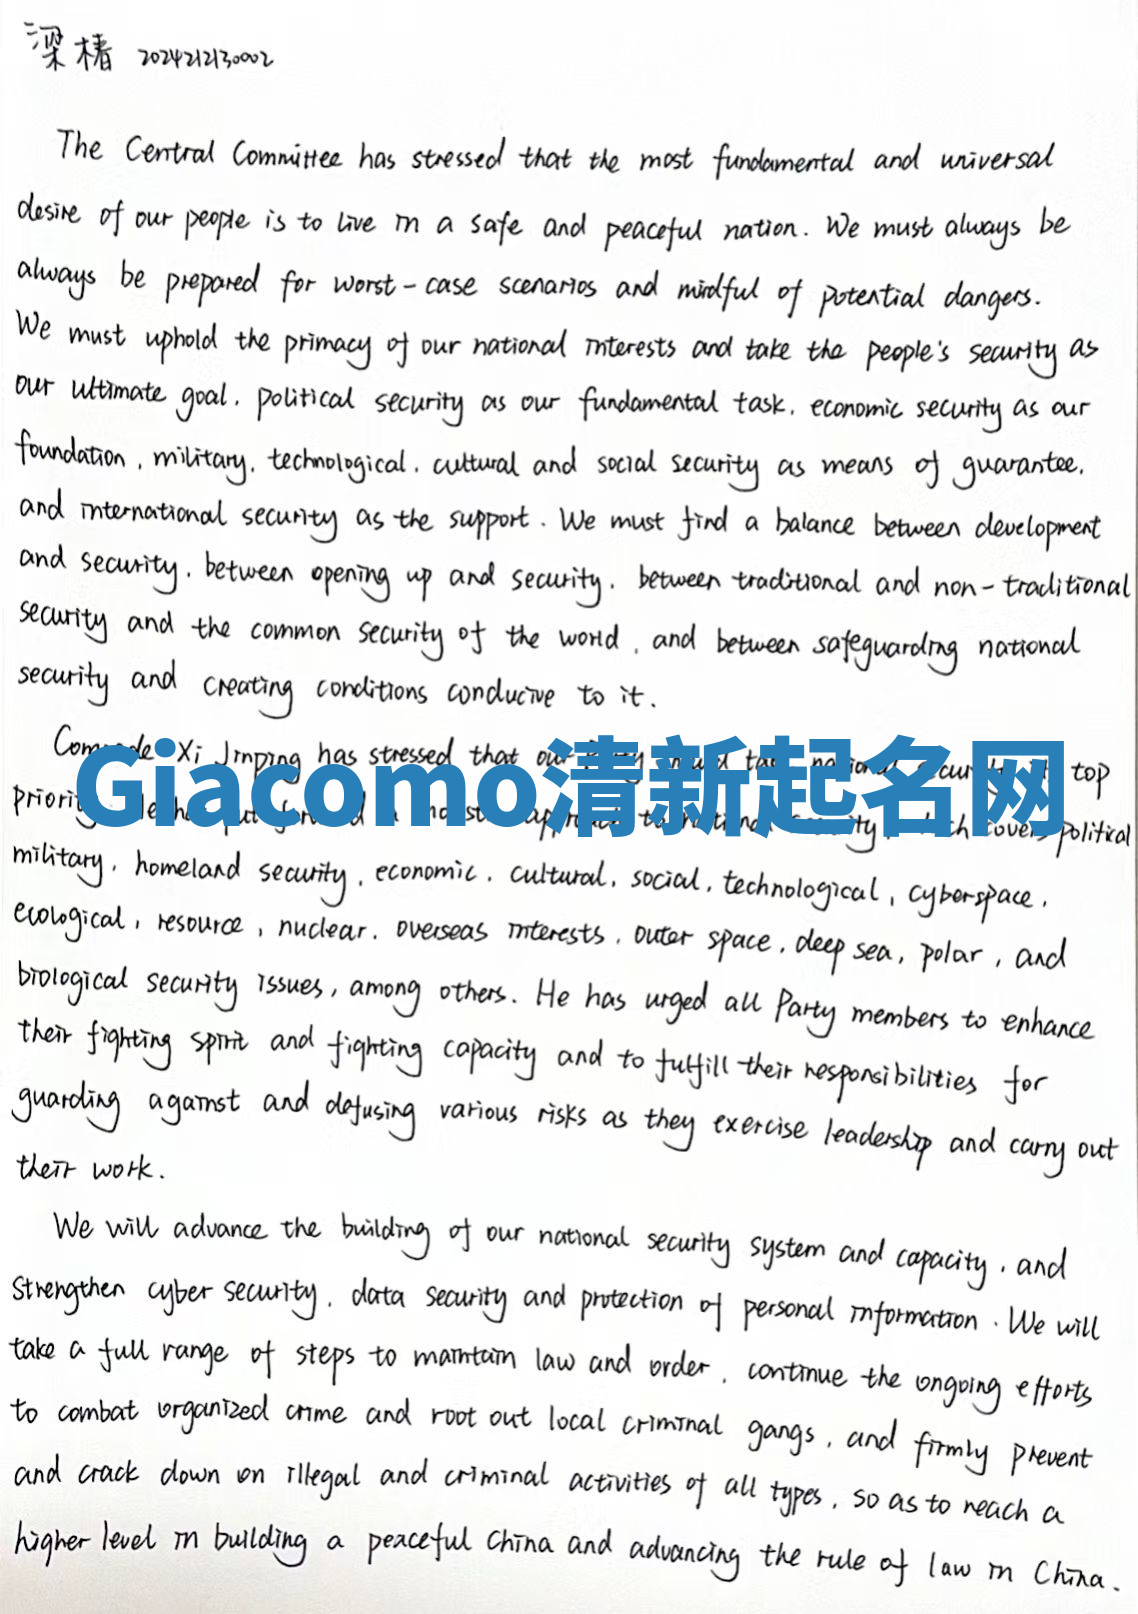 梁椿 2024212130002
The Central Committee has stressed that the most fundamental and universal
desire of our people is to live in a safe and peaceful nation. We must always be
always be prepared for worst-case scenarios and mindful of potential dangers.
We must uphold the primacy of our national interests and take the people's security as
our ultimate goal, political security as our fundamental task, economic security as our
foundation, military, technological, cultural and social security as means of guarantee,
and international security as the support. We must find a balance between development
and security, between opening up and security, between traditional and non-traditional
security and the common security of the world, and between safeguarding national
security and creating conditions conducive to it.
Comrade Xi Jinping has stressed that our take national security top
Giacomo清新起名网
priority put forward a approach to national security covers political
military, homeland security, economic, cultural, social, technological, cyberspace,
ecological, resource, nuclear, overseas interests, outer space, deep sea, polar, and
biological security issues, among others. He has urged all Party members to enhance
their fighting spirit and fighting capacity and to fulfill their responsibilities for
guarding against and defusing various risks as they exercise leadership and carry out
their work.
We will advance the building of our national security system and capacity, and
strengthen cyber security, data security and protection of personal information. We will
take a full range of steps to maintain law and order, continue the ongoing efforts
to combat organized crime and root out local criminal gangs, and firmly prevent
and crack down on illegal and criminal activities of all types, so as to reach a
higher level in building a peaceful China and advancing the rule of law in China.